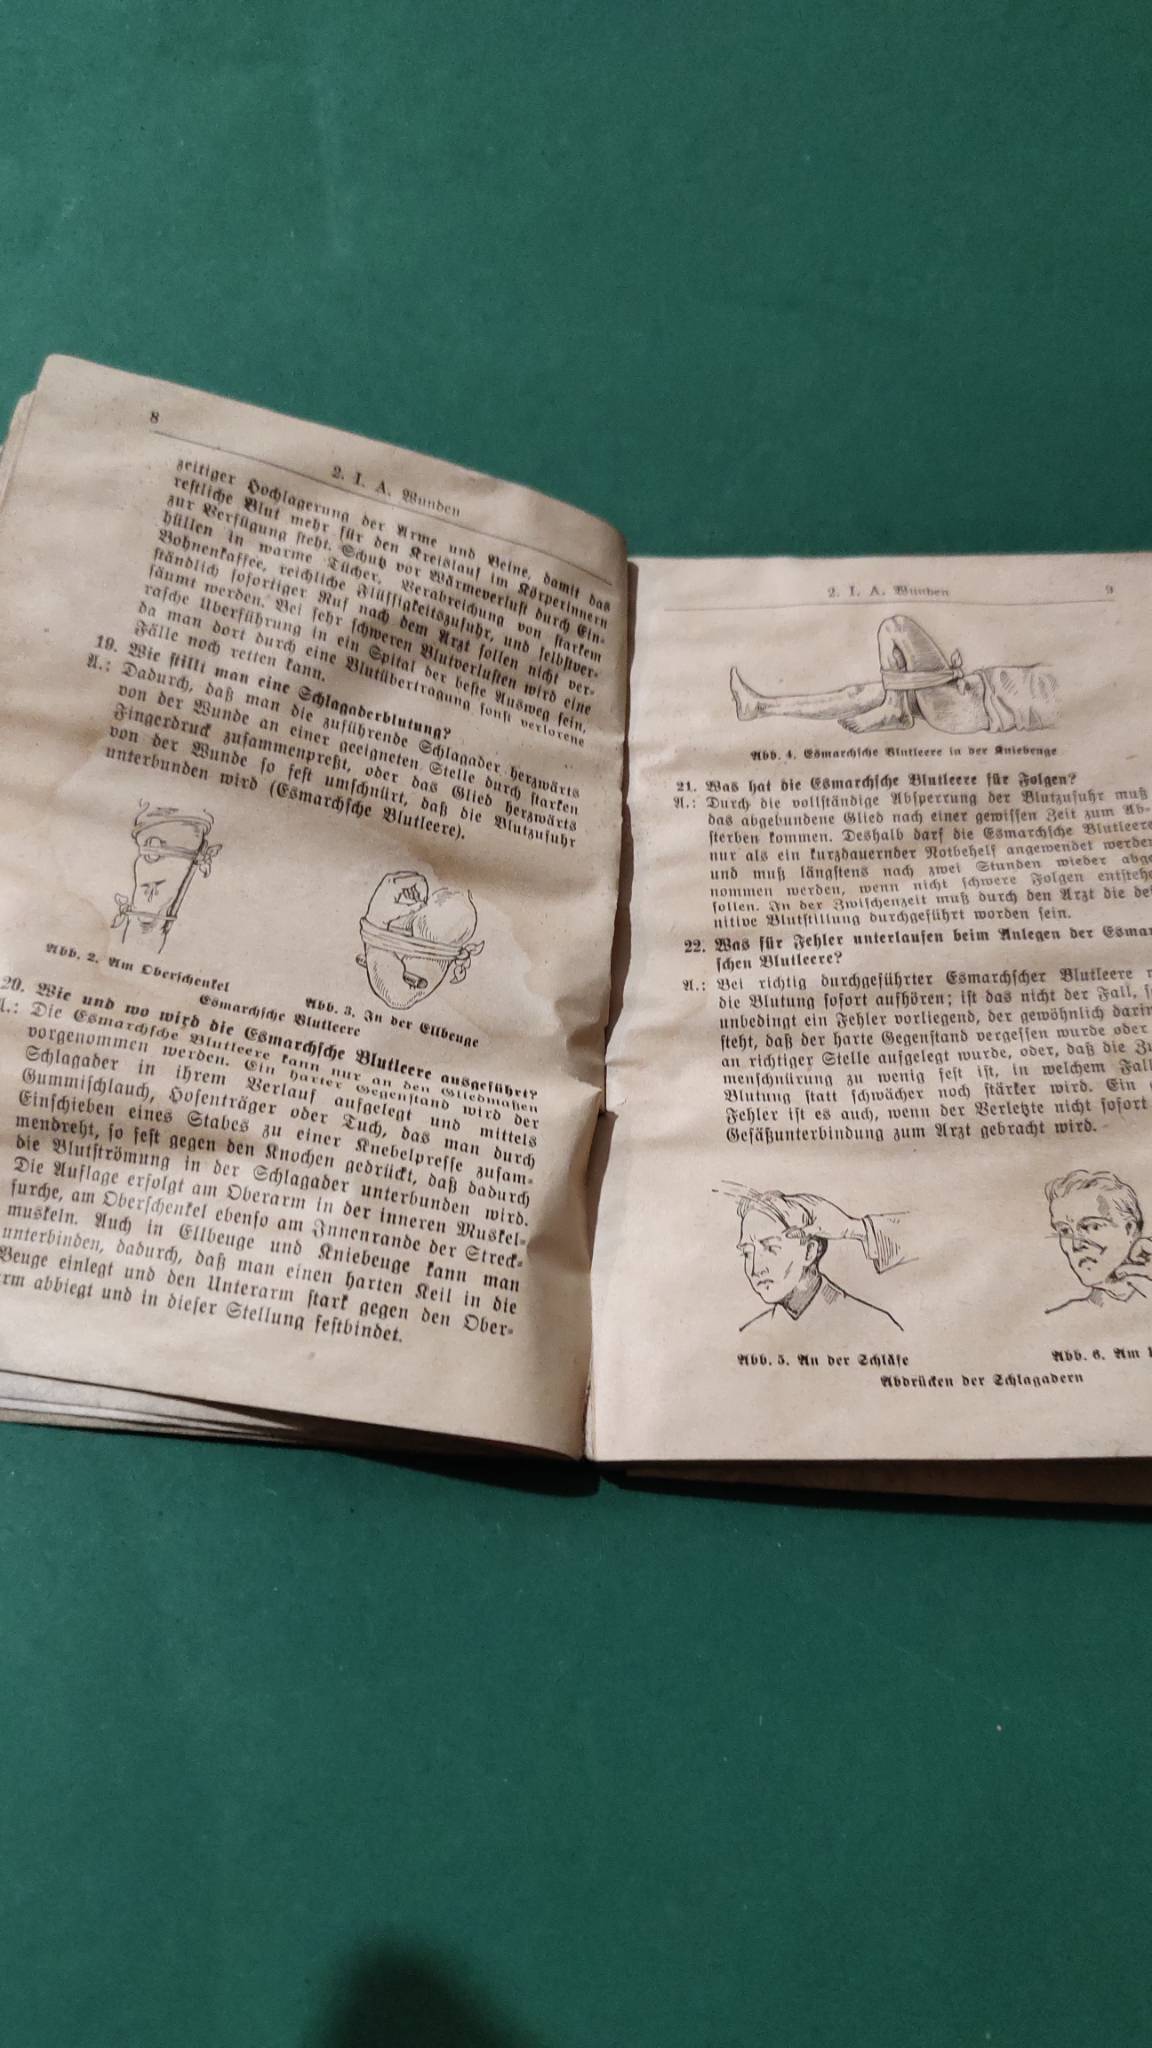 8
2. I. A. Wunden
zeitiger Hochlagerung der Arme und Beine, damit das
restliche Blut mehr für den Kreislauf im Körperinnern
zur Verfügung steht. Schutz vor Wärmeverlust durch Ein-
hüllen in warme Tücher, Verabreichung von starkem
Bohnenkaffee, reichliche Flüssigkeitszufuhr, und selbstver-
ständlich sofortiger Ruf nach dem Arzt sollen nicht ver-
säumt werden. Bei sehr schweren Blutverlusten wird eine
rasche Überführung in ein Spital der beste Ausweg sein,
da man dort durch eine Blutübertragung sonst verlorene
Fälle noch retten kann.
19. Wie stillt man eine Schlagaderblutung?
A.: Dadurch, daß man die zuführende Schlagader herzwärts
von der Wunde an einer geeigneten Stelle durch starken
Fingerdruck zusammenpreßt, oder das Glied herzwärts
von der Wunde so fest umschnürt, daß die Blutzufuhr
unterbunden wird (Esmarchsche Blutleere).
Abb. 2. Am Oberschenkel
Abb. 3. In der Ellbeuge
Esmarchsche Blutleere
20. Wie und wo wird die Esmarchsche Blutleere ausgeführt?
A.: Die Esmarchsche Blutleere kann nur an den Gliedmaßen
vorgenommen werden. Ein harter Gegenstand wird der
Schlagader in ihrem Verlauf aufgelegt und mittels
Gummischlauch, Hosenträger oder Tuch, das man durch
Einschieben eines Stabes zu einer Knebelpresse zusam-
mendreht, so fest gegen den Knochen gedrückt, daß dadurch
die Blutströmung in der Schlagader unterbunden wird.
Die Auflage erfolgt am Oberarm in der inneren Muskel-
furche, am Oberschenkel ebenso am Innenrande der Streck-
muskeln. Auch in Ellbeuge und Kniebeuge kann man
unterbinden, dadurch, daß man einen harten Keil in die
Beuge einlegt und den Unterarm stark gegen den Ober-
arm abbiegt und in dieser Stellung festbindet.
2. I. A. Wunden 9
Abb. 4. Esmarchsche Blutleere in der Kniebeuge
21. Was hat die Esmarchsche Blutleere für Folgen?
A.: Durch die vollständige Absperrung der Blutzufuhr muß
das abgebundene Glied nach einer gewissen Zeit zum Ab-
sterben kommen. Deshalb darf die Esmarchsche Blutleere
nur als ein kurzdauernder Notbehelf angewendet werden
und muß längstens nach zwei Stunden wieder abge
nommen werden, wenn nicht schwere Folgen entstehe
sollen. In der Zwischenzeit muß durch den Arzt die def
nitive Blutstillung durchgeführt worden sein.
22. Was für Fehler unterlaufen beim Anlegen der Esmar
schen Blutleere?
A.: Bei richtig durchgeführter Esmarchscher Blutleere
die Blutung sofort aufhören; ist das nicht der Fall,
unbedingt ein Fehler vorliegend, der gewöhnlich darin
steht, daß der harte Gegenstand vergessen wurde oder
an richtiger Stelle aufgelegt wurde, oder, daß die Zu
menschnürung zu wenig fest ist, in welchem Fall
Blutung statt schwächer noch stärker wird. Ein
Fehler ist es auch, wenn der Verletzte nicht sofort
Gefäßunterbindung zum Arzt gebracht wird.
Abb. 5. An der Schläfe
Abb. 6. Am
Abdrücken der Schlagadern